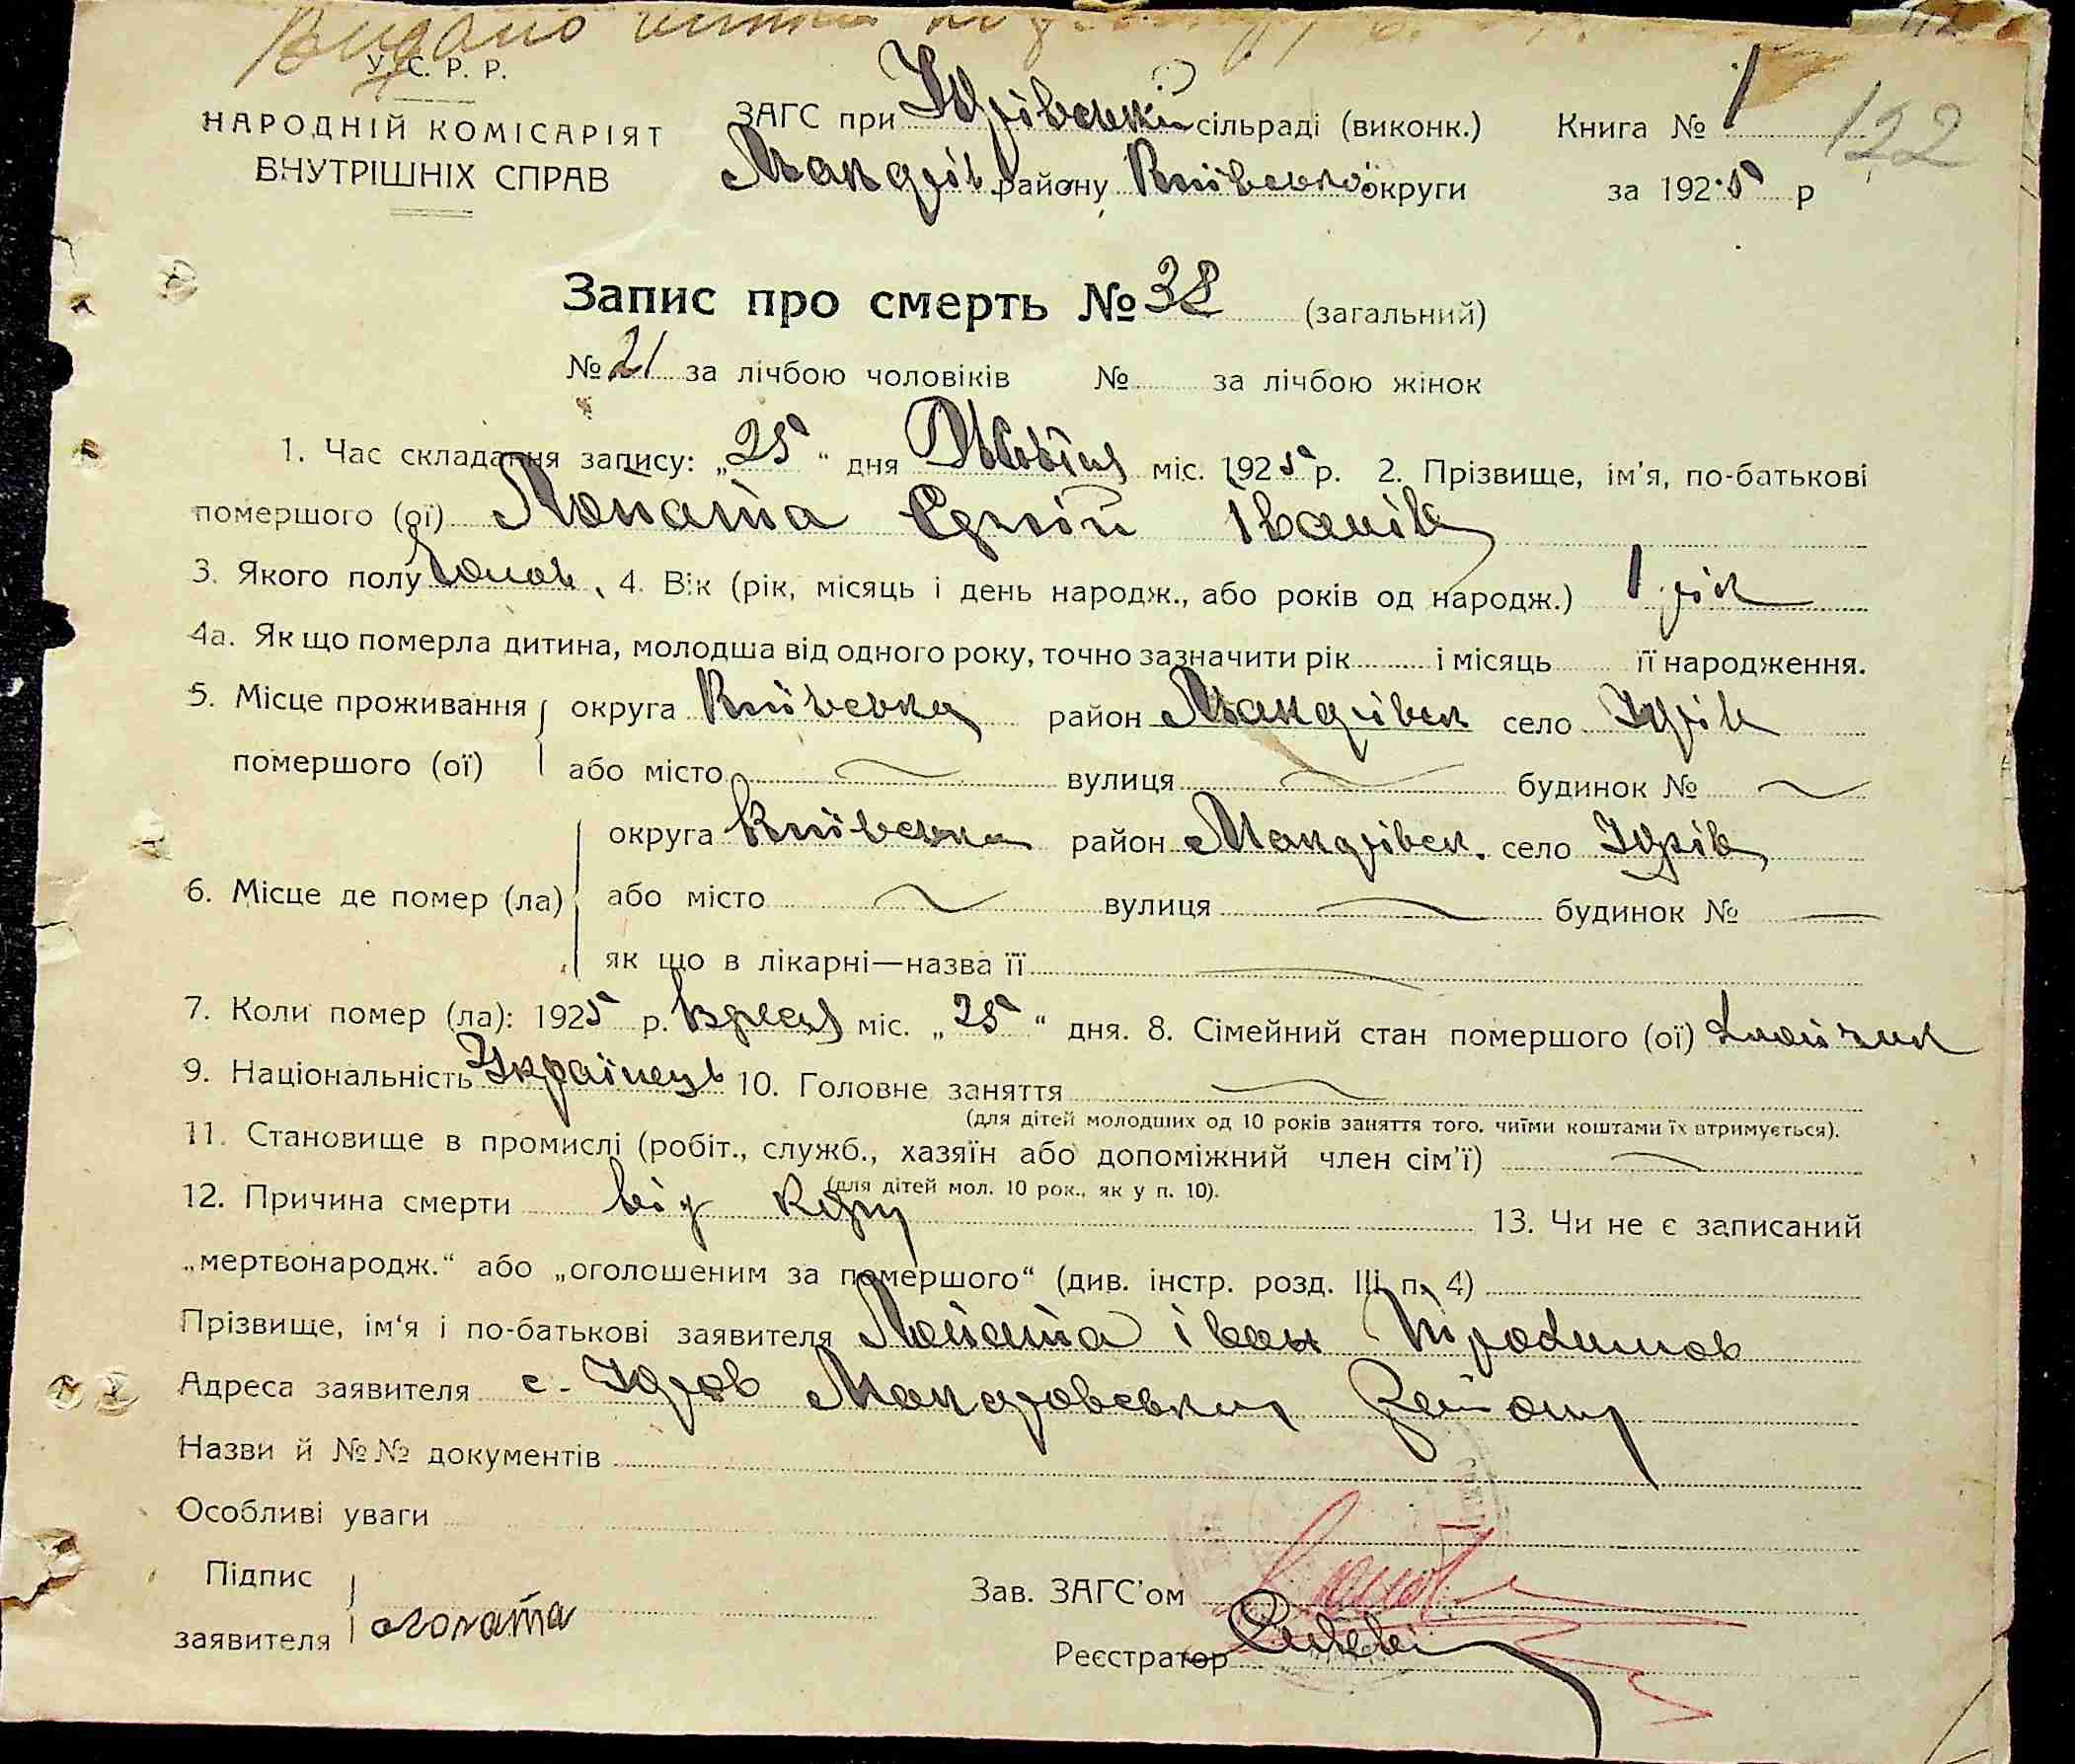 Видано
У. С. Р. Р.
НАРОДНІЙ КОМІСАРІЯТ
ВНУТРІШНІХ СПРАВ
ЗАГС при Юрівській сільраді (виконк.)
Макарів району Київської округи
Книга № 1
122
за 1925 р
Запис про смерть № 38 (загальний)
№ 21 за лічбою чоловіків № за лічбою жінок
1. Час складання запису: „25“ дня Жовтня міс. 1925 р. 2. Прізвище, ім'я, по-батькові
помершого (ої) Лопата Сргій Іванів
3. Якого полу чолов, 4. Вік (рік, місяць і день народж., або років од народж.) 1 рік
4а. Як що померла дитина, молодша від одного року, точно зазначити рік і місяць її народження.
5. Місце проживання округа Київська район село Юрів
помершого (ої) або місто вулиця будинок №
округа Київська район село Юрів
6. Місце де помер (ла) або місто вулиця будинок №
як що в лікарні—назва її
7. Коли помер (ла): 1925 р. міс. „25“ дня. 8. Сімейний стан помершого (ої)
9. Національність Українець 10. Головне заняття
(для дітей молодших од 10 років заняття того, чиїми коштами їх втримується).
11. Становище в промислі (робіт., служб., хазяїн або допоміжний член сім'ї)
(для дітей мол. 10 рок., як у п. 10).
12. Причина смерти від Кору 13. Чи не є записаний
„мертвонародж.“ або „оголошеним за помершого“ (див. інстр. розд. III п. 4)
Прізвище, ім'я і по-батькові заявителя Лопата іван Трофимов
Адреса заявителя с. Юров району
Назви й №№ документів
Особливі уваги
Підпис
заявителя лопата
Зав. ЗАГС'ом
Реєстратор